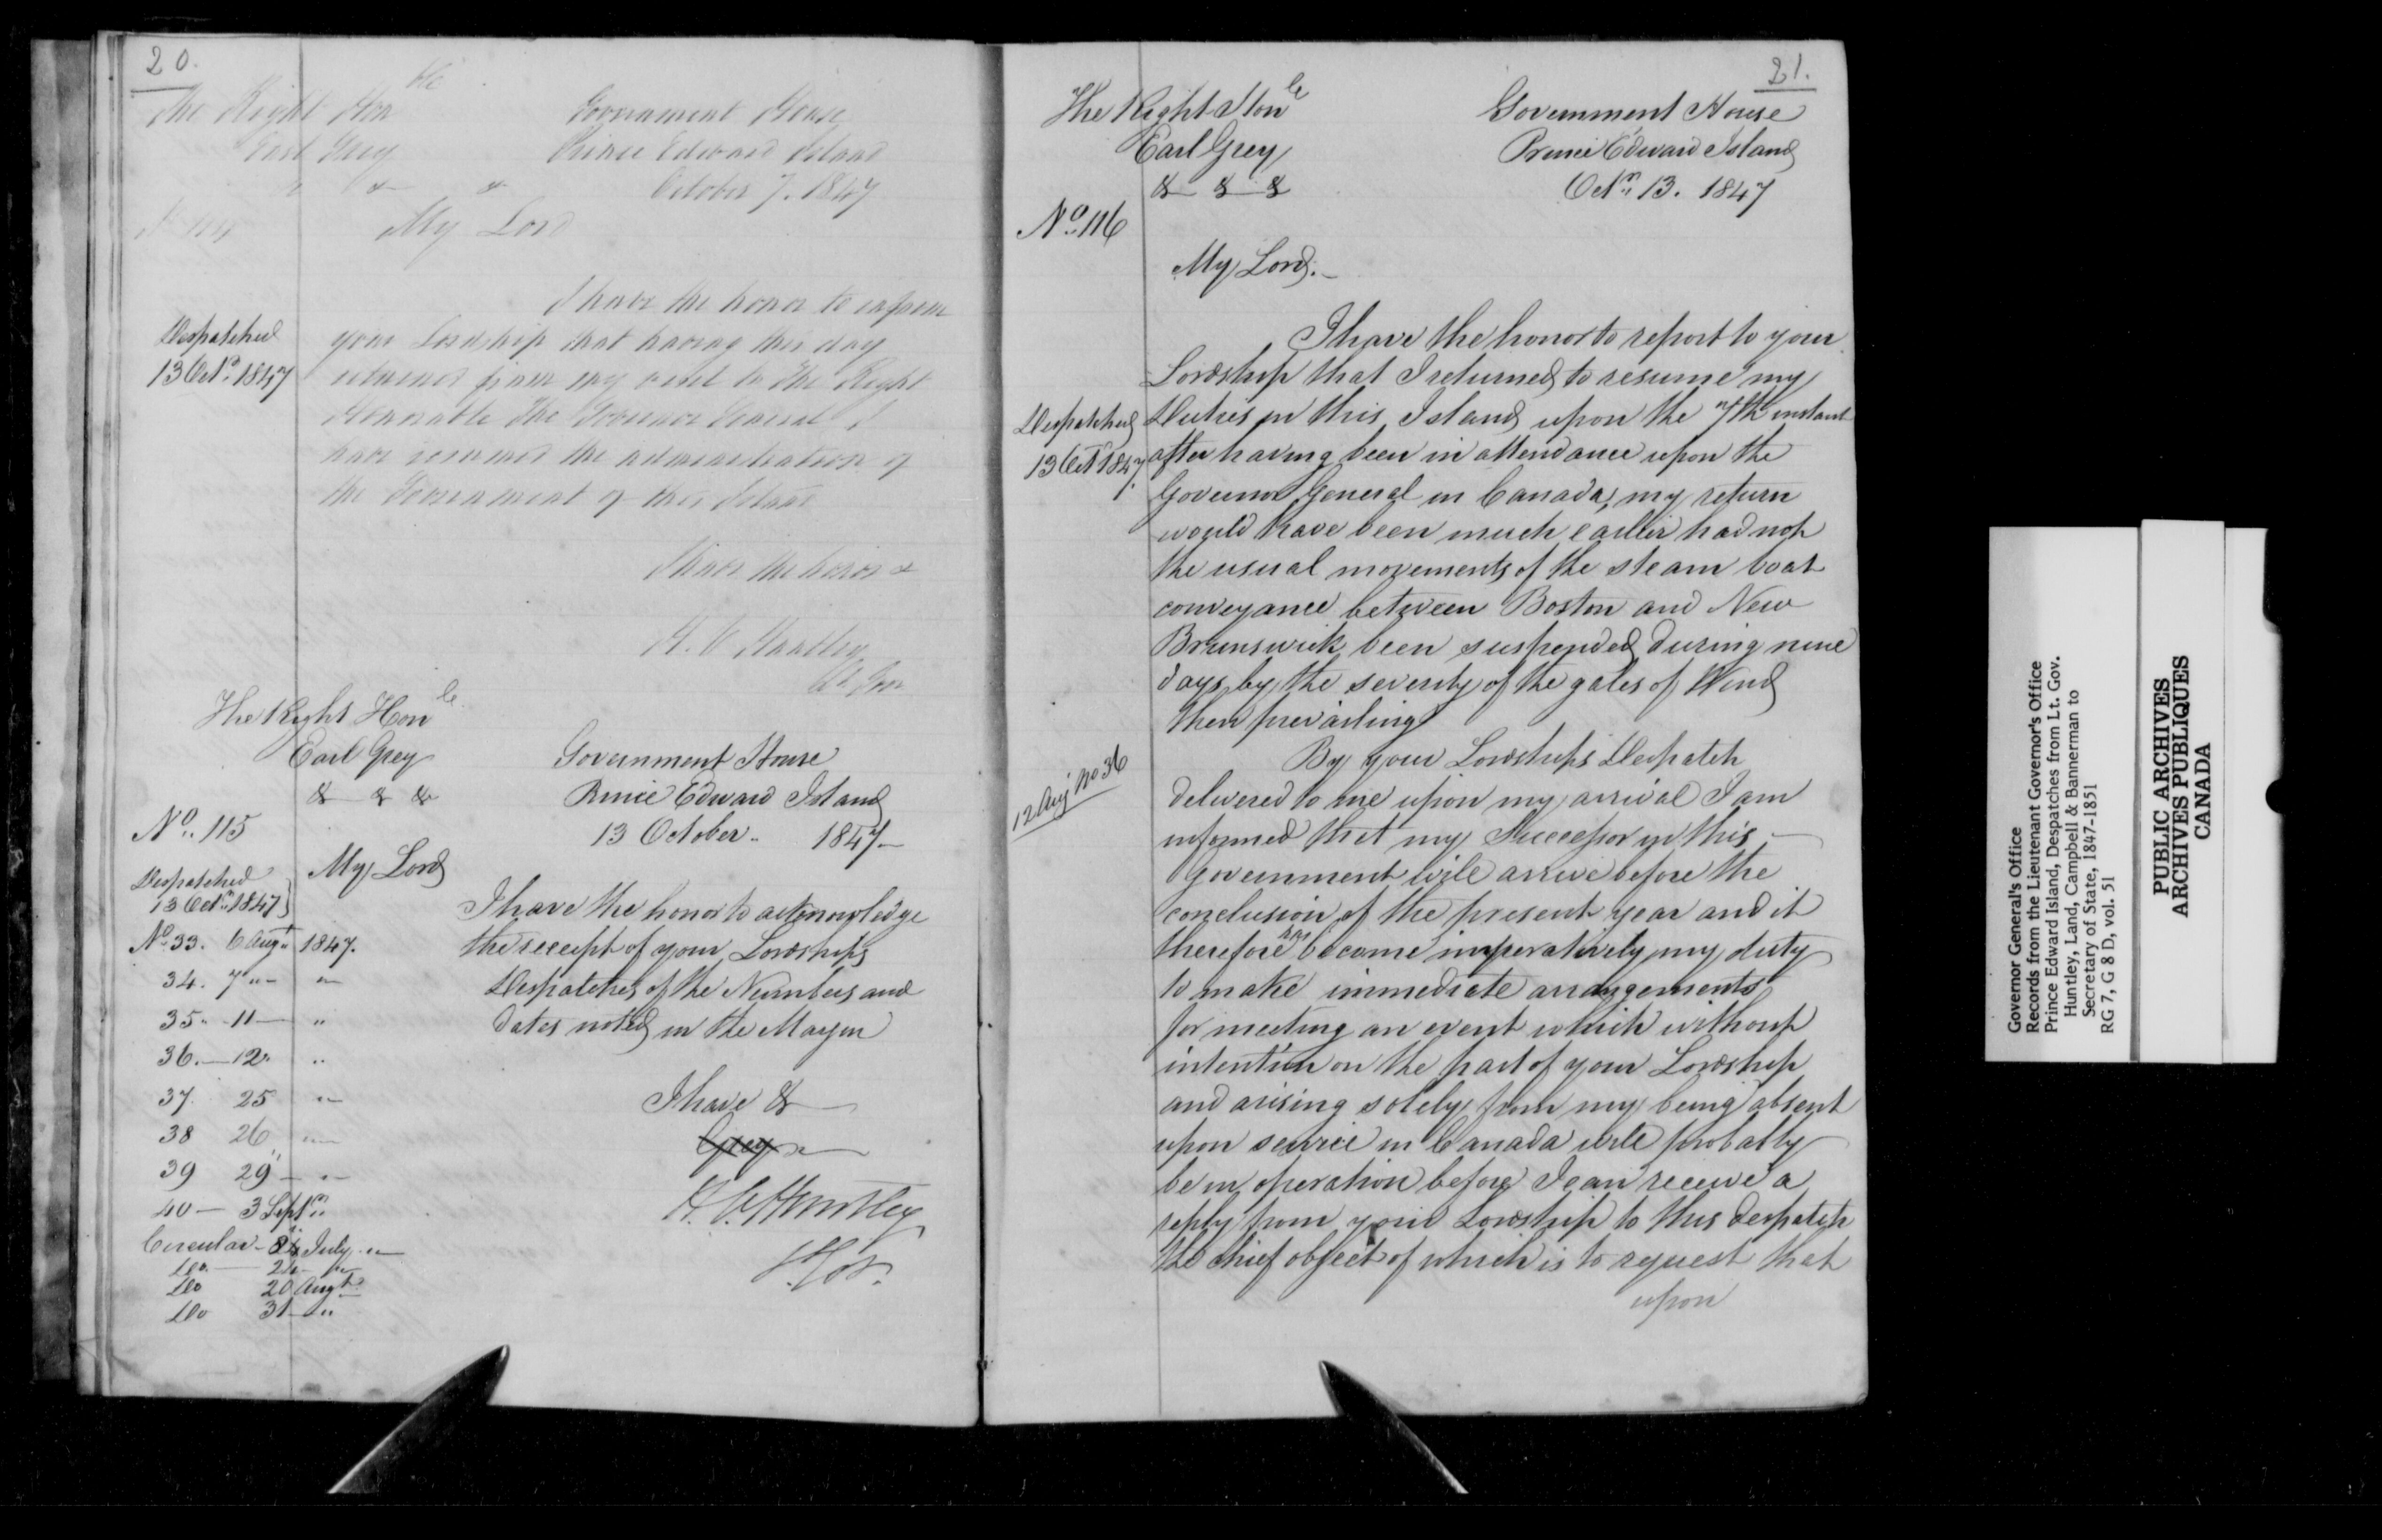 20.
The Right Hon ble
Government House
Earl Grey
Prince Edward Island
& &
October 7. 1847
My Lord
I have the honor to inform
Despatched
13 Octr. 1847
your Lordship that having this day
returned from my visit to the Right
Honorable The Governor General I
have resumed the administration of
the Government of this Island
I have the honor &
H. V. Huntley
Lt. Gov
The Right Honle
Earl Grey
& & &
Government House
Prince Edward Island
13 October 1847
No. 115
My Lord
Despatched
13 Octr. 1847
I have the honor to acknowledge
the receipt of your Lordships
Despatches of the Numbers and
dates noted in the Margin
No. 33. 6 Augt 1847.
34. 7 " "
35. 11 "
36. 12 "
37. 25 "
38 26 "
39 29 "
40 3 Septr. "
Circular 8 July "
Do. "
Do 20 Augt
Do 31 "
I have &
Grey
H. V. Huntley
Lt. Gov.
21.
The Right Honle
Government House
Earl Grey
Prince Edward Island
& & &
Octr. 13. 1847
No. 116
My Lord.
I have the honor to report to your
Lordship that I returned to resume my
Despatched
13 Oct 1847.
Duties in this Island upon the 7th instant
after having been in attendance upon the
Governor General in Canada, my return
would have been much earlier had not
the usual movements of the steam boat
conveyance between Boston and New
Brunswick been suspended during nine
days by the severity of the gales of Wind
then prevailing
12 Aug No 36
By your Lordships Despatch
delivered to me upon my arrival I am
informed that my Successor in this
Government will arrive before the
conclusion of the present year and it
therefore has become imperatively my duty
to make immediate arrangements
for meeting an event which without
intention on the part of your Lordship
and arising solely from my being absent
upon service in Canada will probably
be in operation before I can receive a
reply from your Lordship to this despatch
the chief object of which is to request that
upon
Governor General's Office
Records from the Lieutenant Governor's Office
Prince Edward Island, Despatches from Lt. Gov.
Huntley, Land, Campbell & Bannerman to
Secretary of State, 1847-1851
RG 7, G 8 D, vol. 51
PUBLIC ARCHIVES
ARCHIVES PUBLIQUES
CANADA